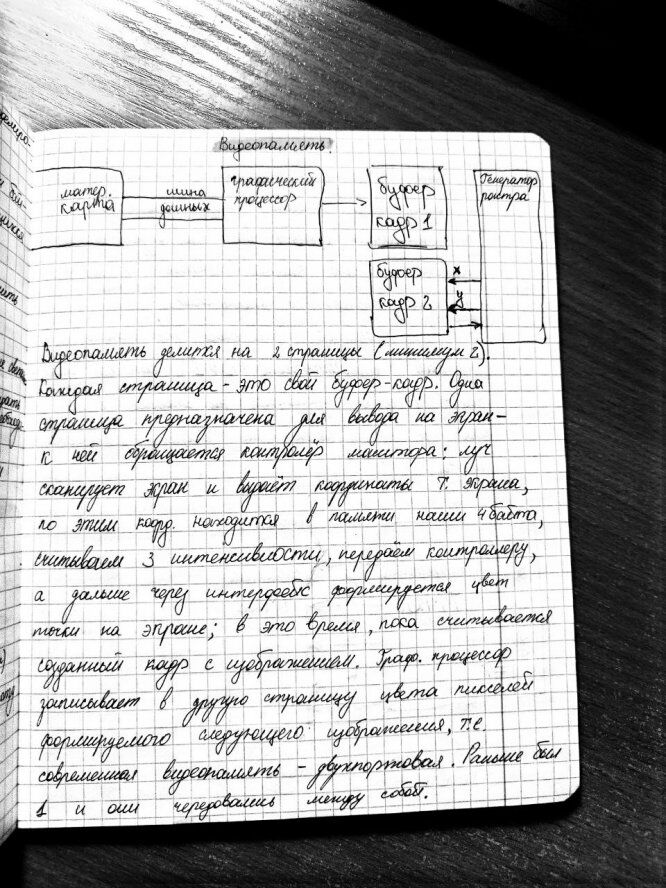 Видеопамять.
матер. карта
шина данных
графический процессор
буфер кадр 1
Генератор растра
буфер кадр 2
x
y
Видеопамять делится на 2 страницы (минимум 2).
Каждая страница - это свой буфер-кадр. Одна
страница предназначена для вывода на экран-
к ней обращается контролёр монитора: луч
сканирует экран и выдаёт координаты т. экрана,
по этим коорд. находится в памяти наши 4 байта,
считываем 3 интенсивности, передаём контроллеру,
а дальше через интерфейс формируется цвет
точки на экране; в это время, пока считывается
созданный кадр с изображением. Граф. процессор
записывает в другую страницу цвета пикселей
формируемого следующего изображения, т.е.
современная видеопамять - двухпортовая. Раньше был
1 и они чередовались между собой.